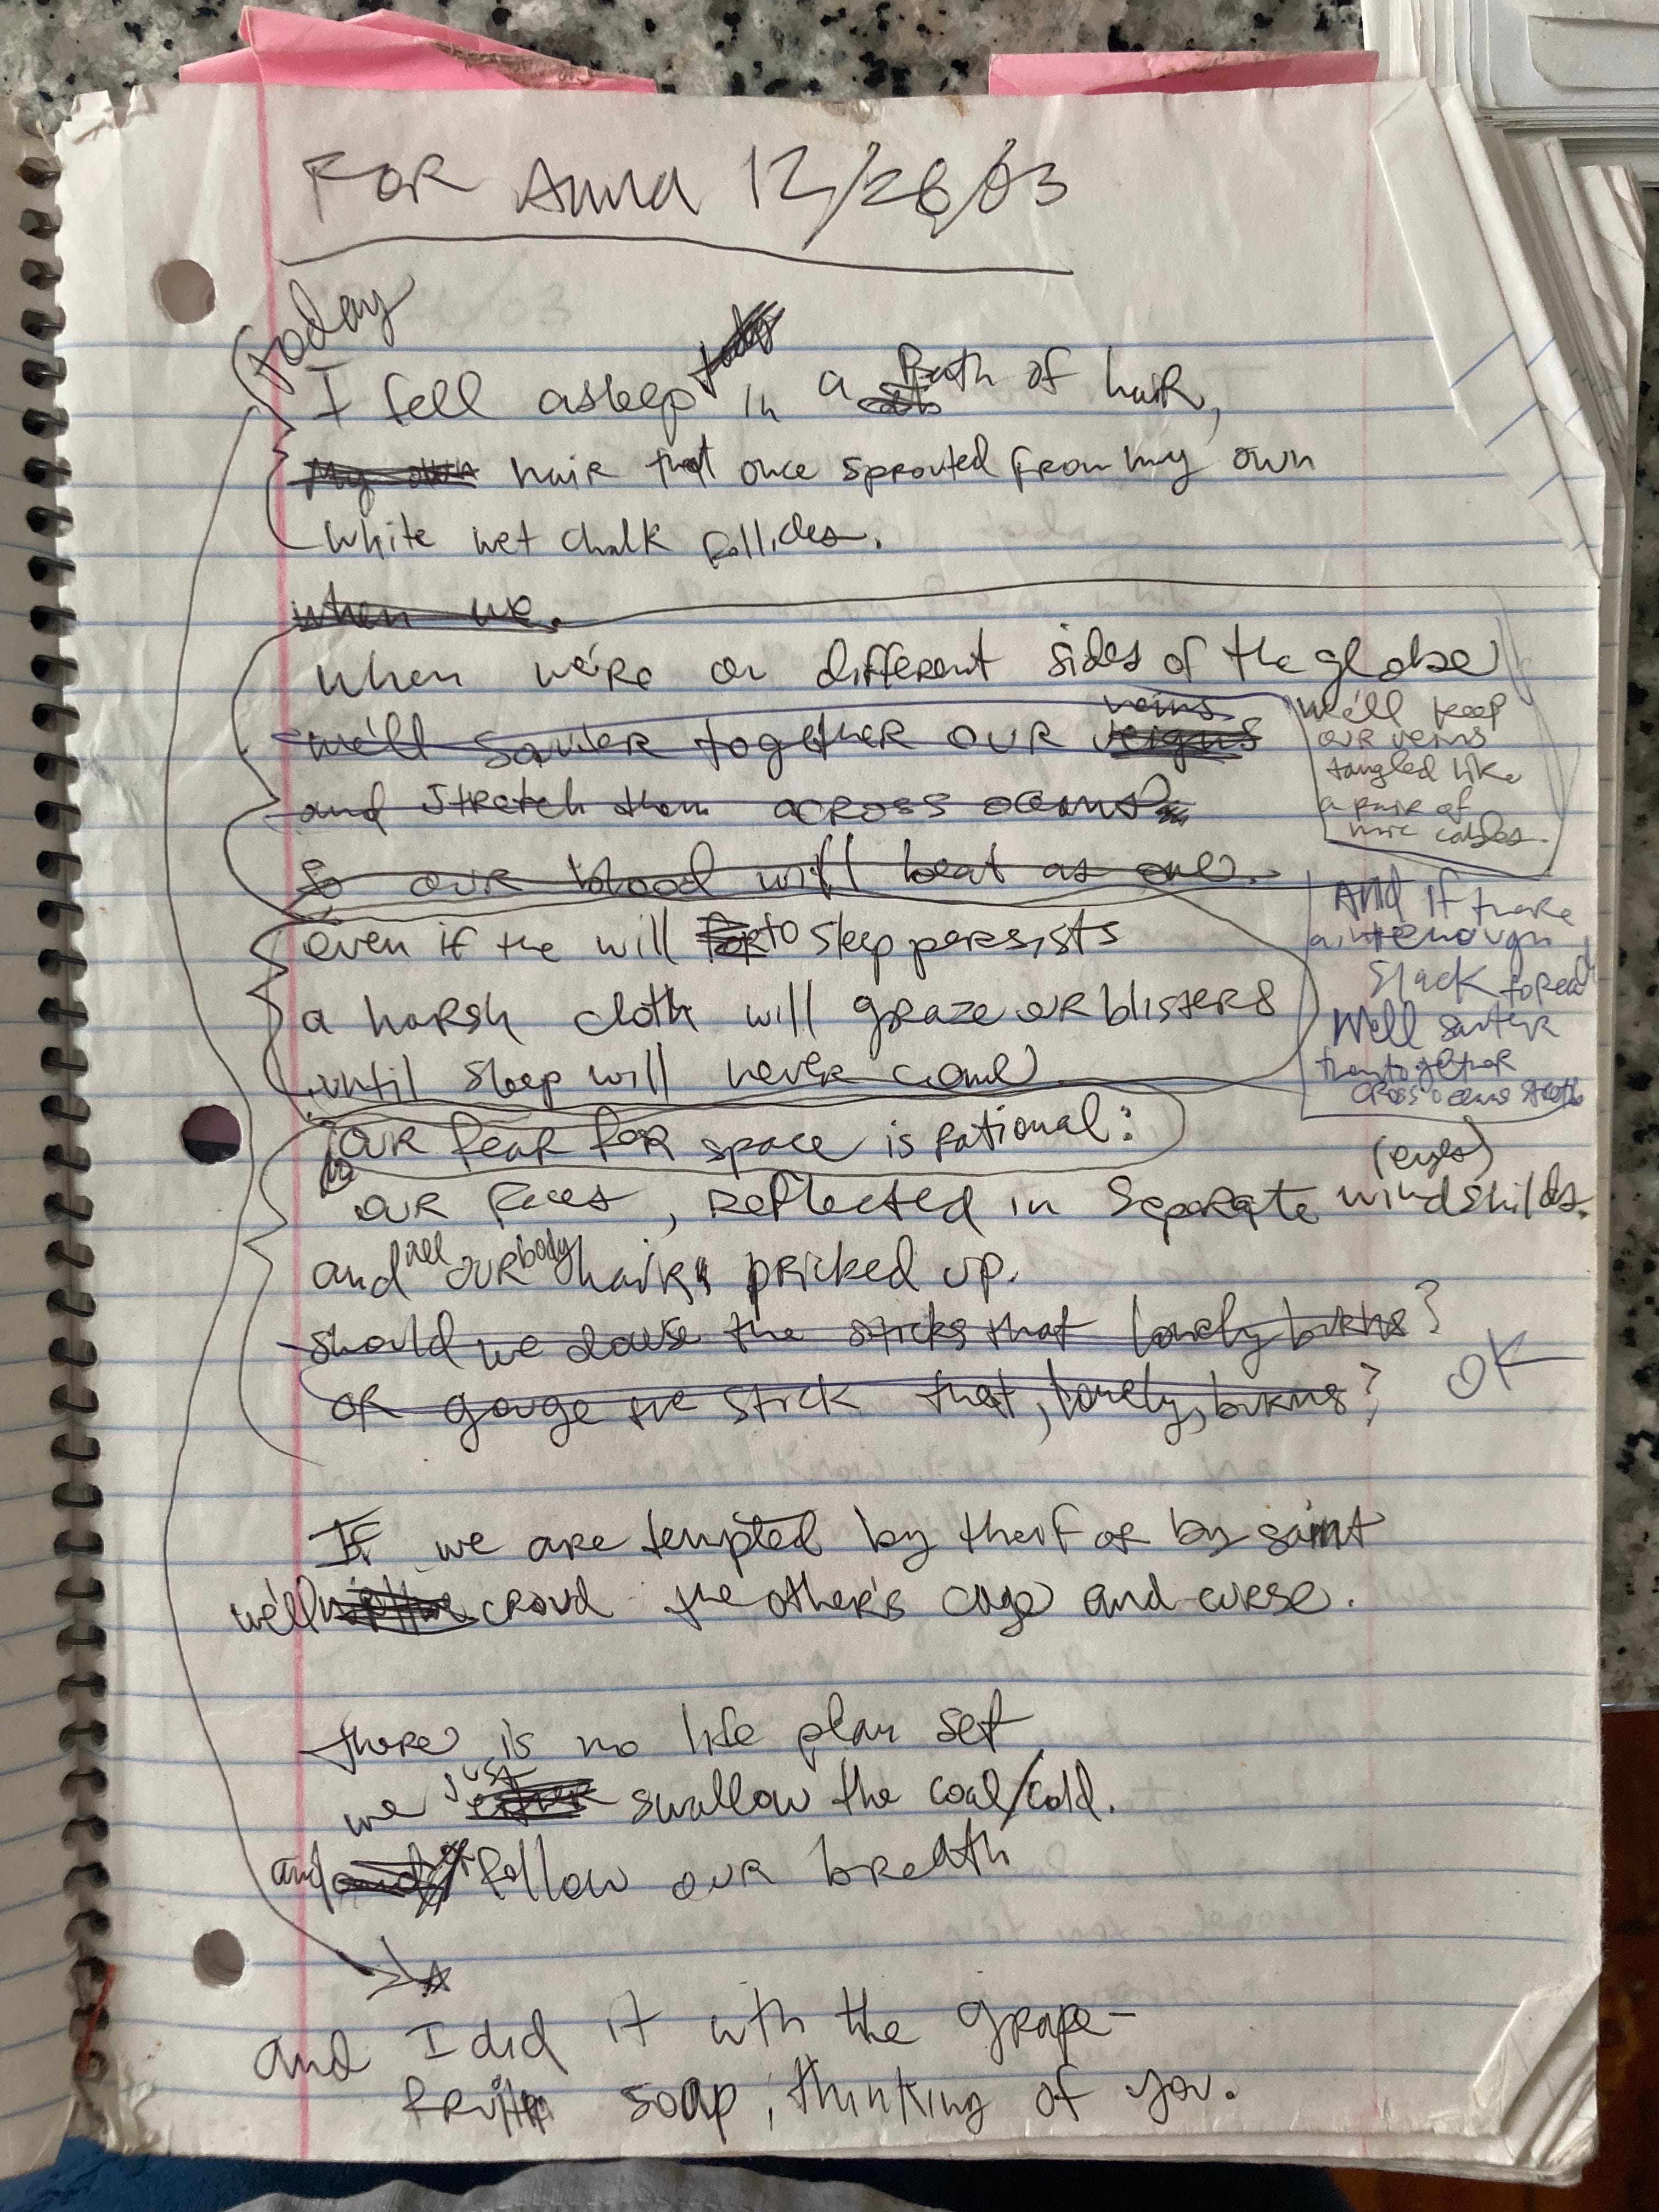 FOR ANNA 12/28/03
today
I fell asleep in a Bath of hair,
My own hair that once sprouted from my own
white wet chalk follicles.
when we.
when we're on different sides of the globe
veins
we'll sauter together our veigns
and stretch them across oceans
So our blood will beat as one.
We'll keep
our veins
tangled like
a pair of
mic cables.
And if there
aint enough
slack to
We'll sauter
them together
cross oceans
even if the will for to sleep persists
a harsh cloth will graze our blisters
until sleep will never come
OUR fear for space is rational:
(eyes)
OUR faces, reflected in separate windshilds.
and all our body hairs pricked up.
should we douse the sticks that lonely burns?
OR gouge the stick that, lonely, burns?
OK
If we are tempted by theif or by saint
we'll crowd the other's cage and curse.
there is no life plan set
we just either swallow the coal/cold.
and and or follow our breath
and I did it wth the grape-
fruit soap, thinking of you.